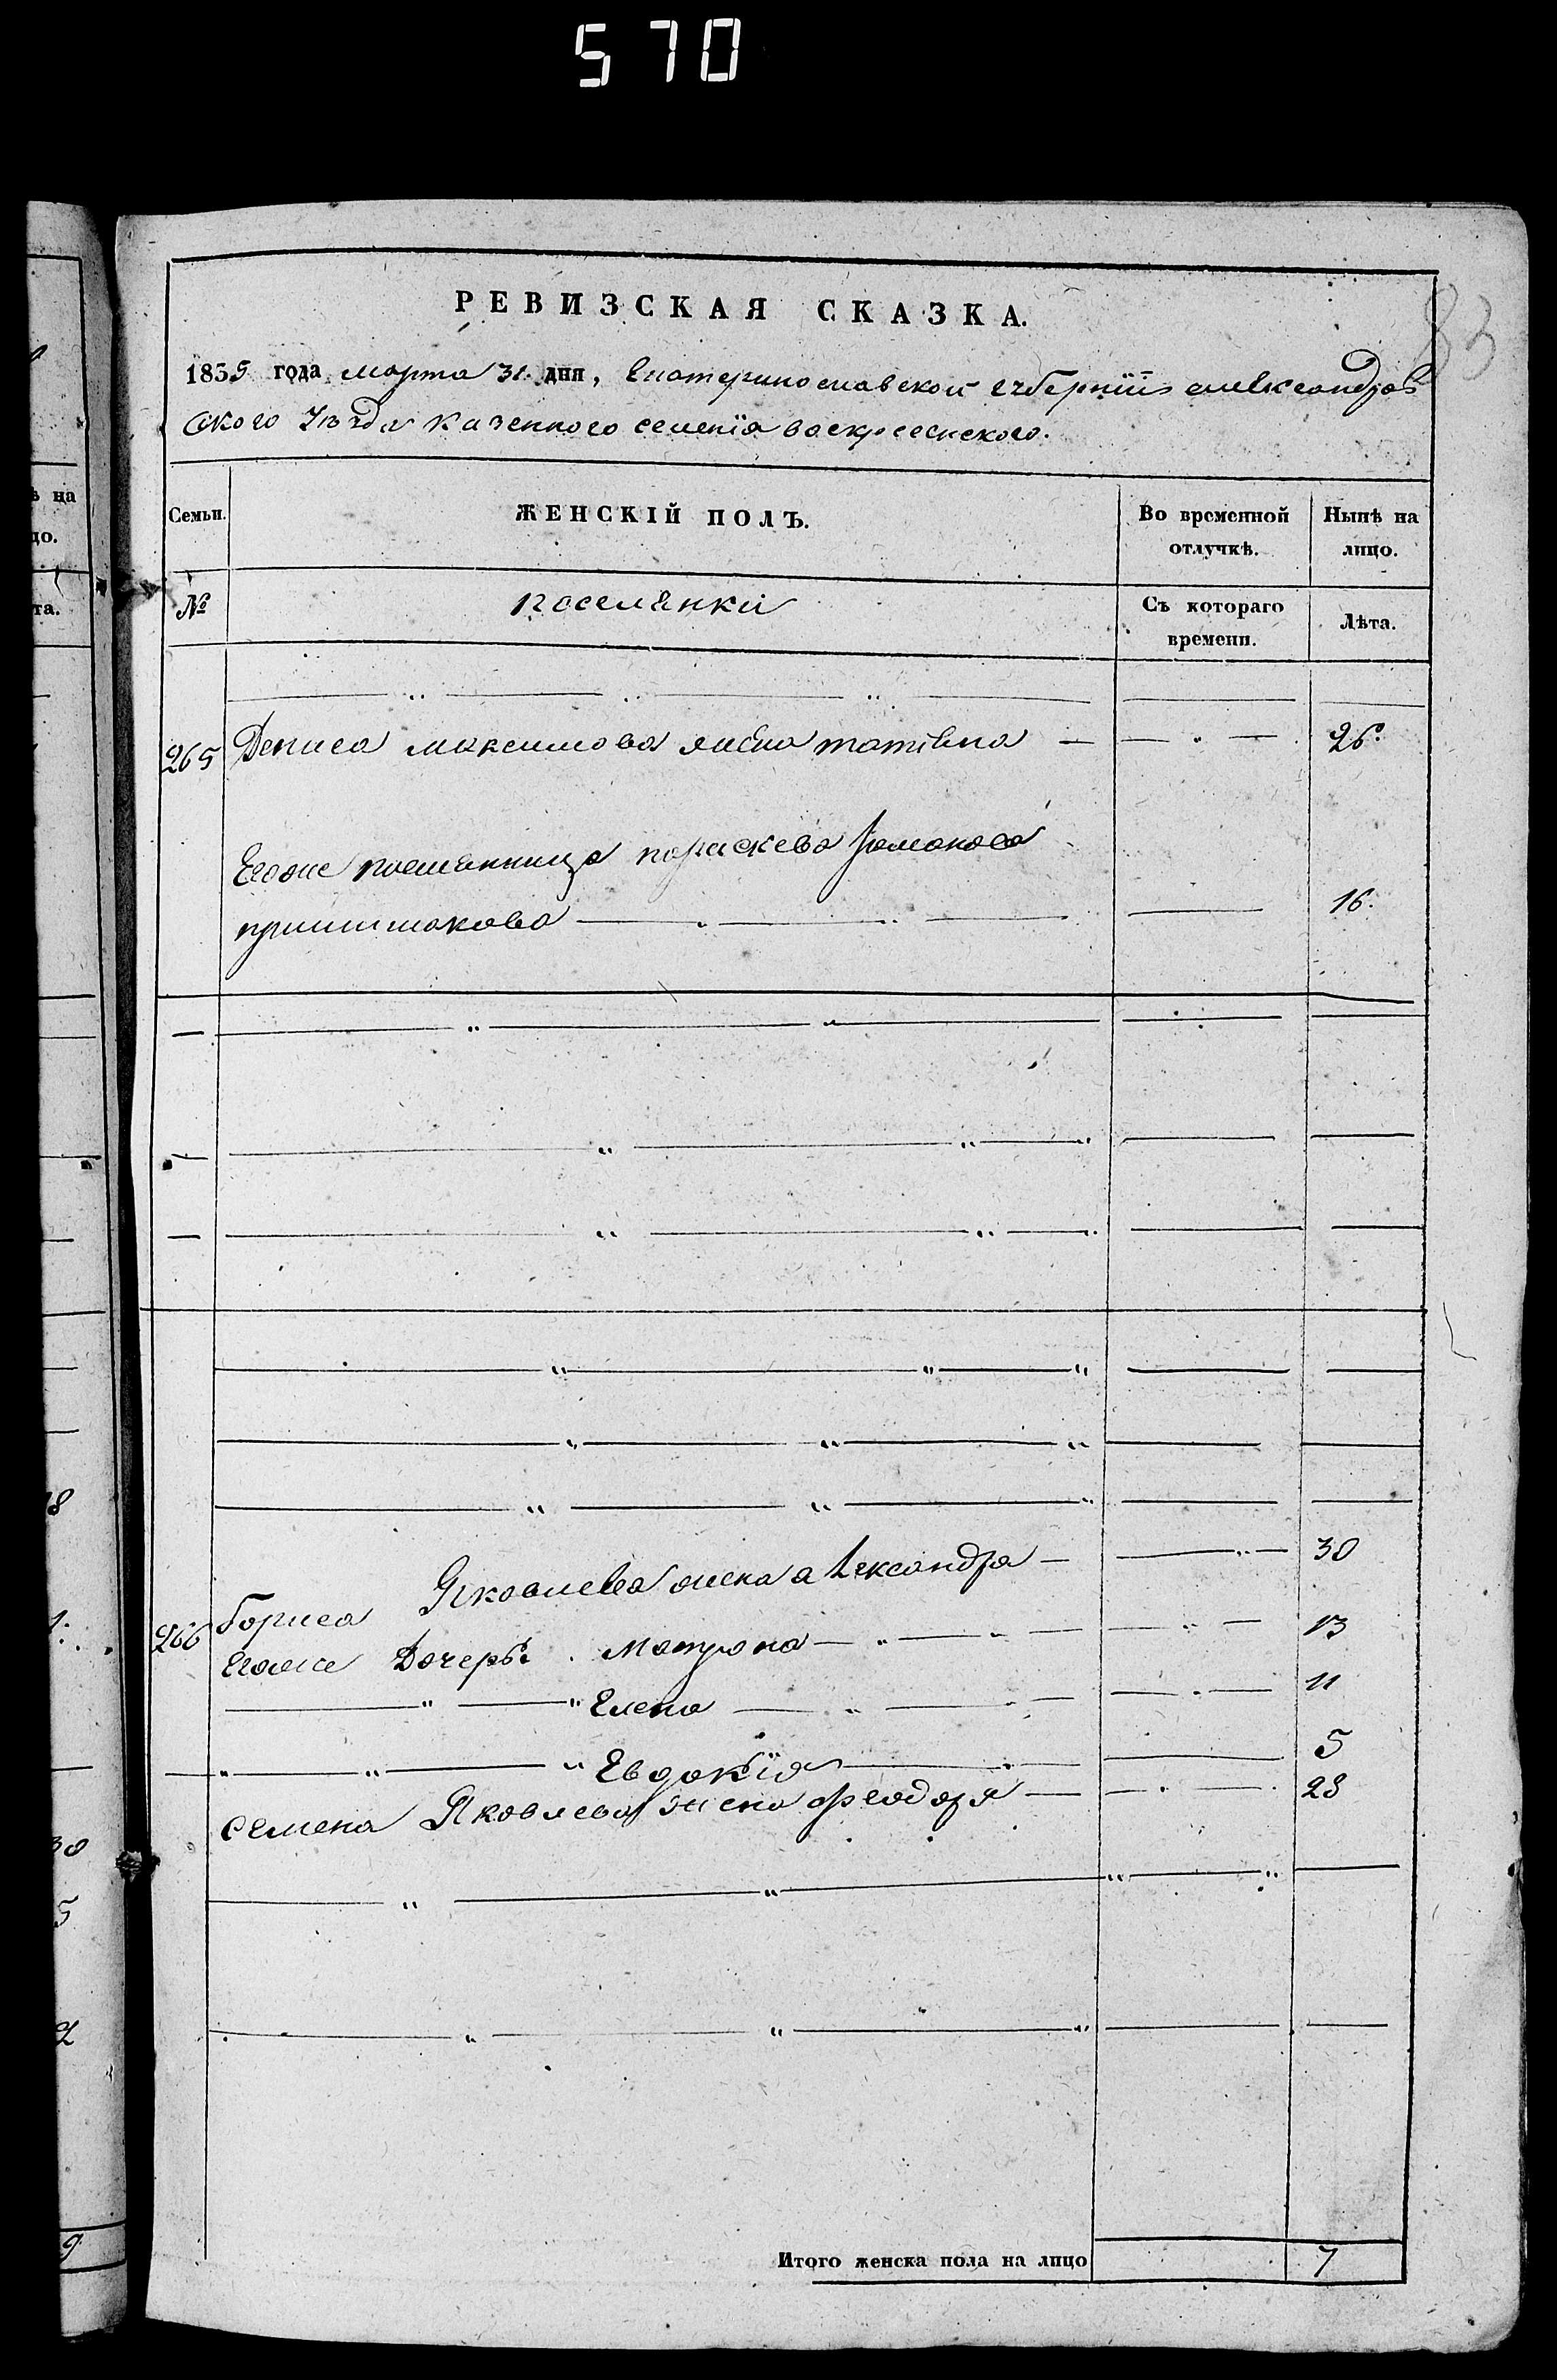 570
83
РЕВИЗСКАЯ СКАЗКА.
1835 года марта 31. дня, Екатеринославской губернїи алеѯандров
ского Уезда казенного селенїя воскресенского.
Семьи. ЖЕНСКІЙ ПОЛЪ. Во временной отлучкѣ. Нынѣ на лицо.
№ поселянки Съ котораго времени. Лѣта.
265 Дениса максимова жена татiяна 26.
Егоже племянница параскева романова
16.
266 Бориса Яковлева жена александра 30
Егоже Дочери. Матрона 13
Елена 11
Евдокїя 5
семена Яковлева жена феодора 28
Итого женска пола на лицо 7
ѣ на
цо.
та.
18
1.
30
5
2
9